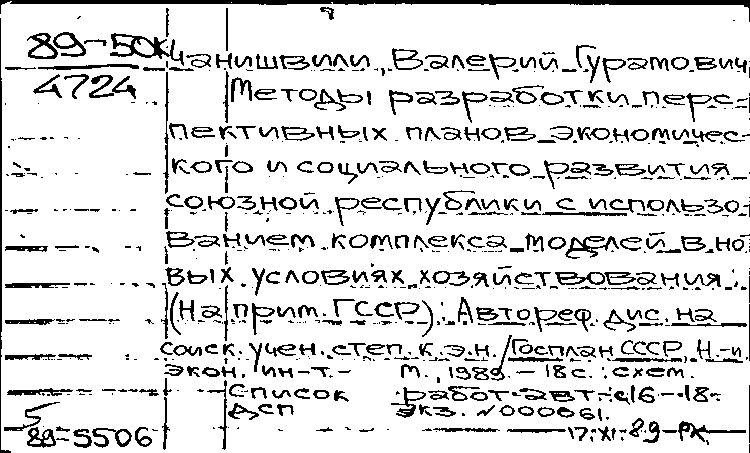 89-50к
4724
Чанишвили, Валерий Гурамович
Методы разработки перс-
пективных планов экономичес-
кого и социального развития
союзной республики с использо-
ванием комплекса моделей в но
вых условиях хозяйствования:
(На прим. ГССР): Автореф. дис. на
соиск. учен. степ. к.э.н. / Госплан СССР, Н.-и
экон. ин-т. - М., 1989. - 18 с.: схем.
Список работ авт.: с. 16-18.
ДСП экз. N000061.
5
89-5506
17.XI.89-РК